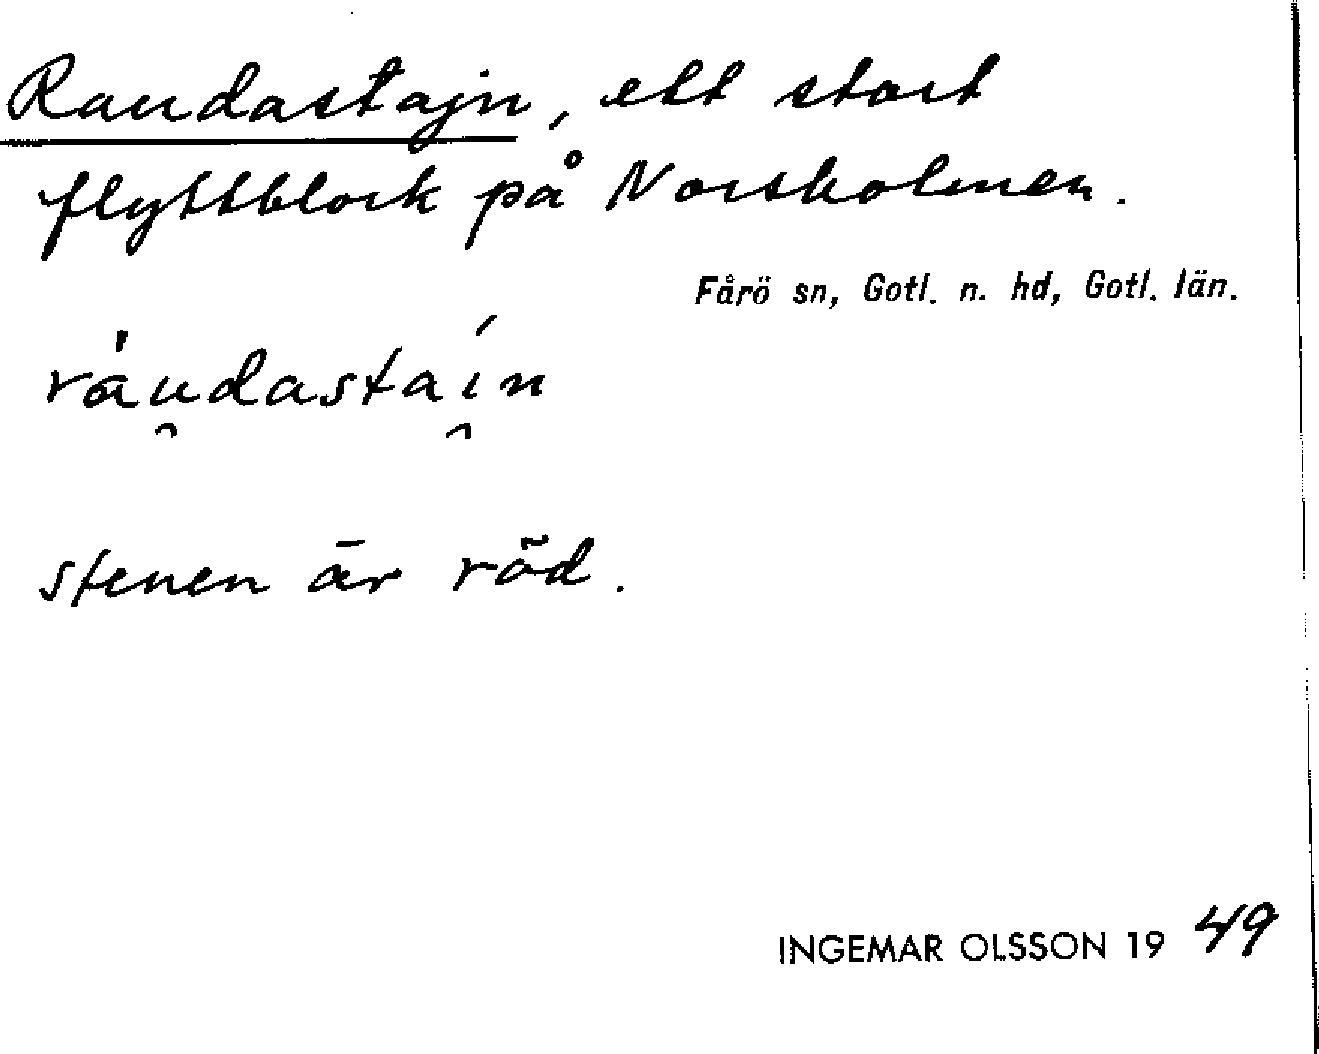 Raudastajn, ett stort
flyttblock på Norsholmen.
Fårö sn, Gotl. n. hd, Gotl. län.
rau̯dastai̯n
stenen är röd.
INGEMAR OLSSON 19 49